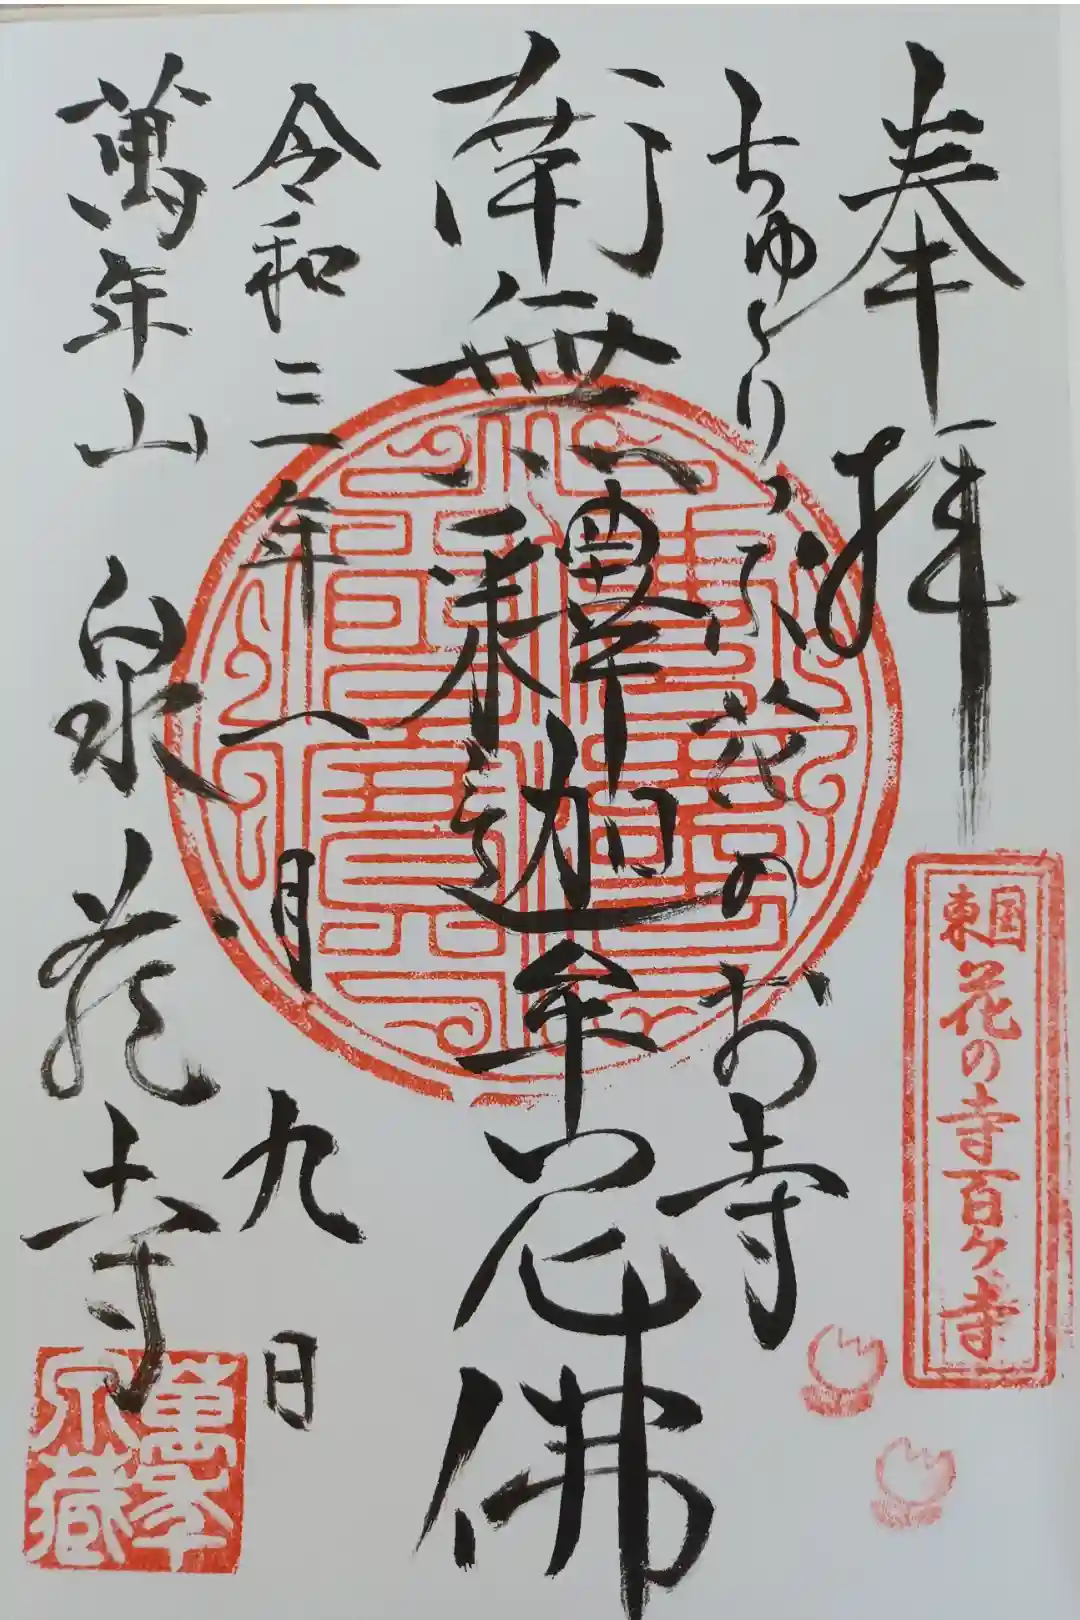 奉拝
東国
花の寺百ヶ寺
ちゅうりっぷ花のお寺
南無釋迦牟尼佛
令和三年八月九日
萬年山 泉蔵寺
萬年
泉蔵